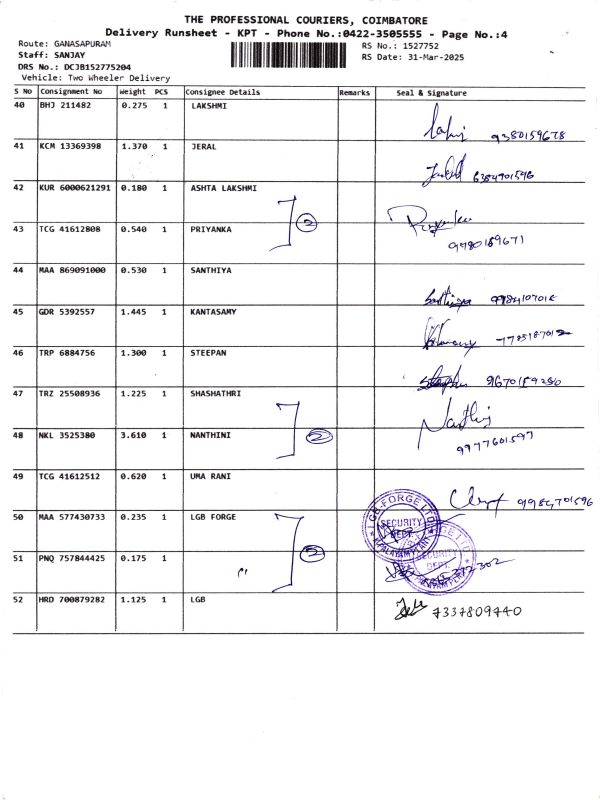 THE PROFESSIONAL COURIERS, COIMBATORE
Delivery Runsheet - KPT - Phone No.:0422-3505555 - Page No.:4
Route: GANASAPURAM
RS No.: 1527752
Staff: SANJAY
RS Date: 31-Mar-2025
DRS No.: DCJB152775204
Vehicle: Two Wheeler Delivery
S No Consignment No Weight PCS Consignee Details Remarks Seal & Signature
40 BHJ 211482 0.275 1 LAKSHMI
9380159678
41 KCM 13369398 1.370 1 JERAL
6384901596
42 KUR 6000621291 0.180 1 ASHTA LAKSHMI
2
43 TCG 41612808 0.540 1 PRIYANKA
9980159671
44 MAA 869091000 0.530 1 SANTHIYA
Santhiya
45 GDR 5392557 1.445 1 KANTASAMY
46 TRP 6884756 1.300 1 STEEPAN
47 TRZ 25508936 1.225 1 SHASHATHRI
Nanthinj
48 NKL 3525380 3.610 1 NANTHINI
2
9977601597
49 TCG 41612512 0.620 1 UMA RANI
9984701596
50 MAA 577430733 0.235 1 LGB FORGE
LGB-FORGE LTD
SECURITY
DEPT.
51 PNQ 757844425 0.175 1
2
SECURITY
DEPT.
52 HRD 700879282 1.125 1 LGB
7337809440